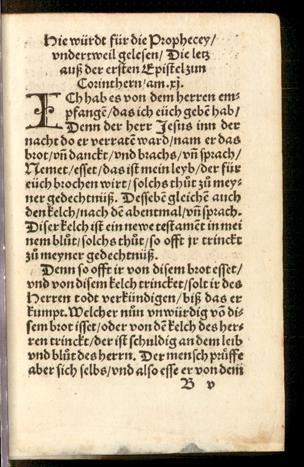 Hie würdt für die Prophecey/
vnderweil gelesen/ Die letz
auß der ersten Epistel zun
Corinthern/am.xj.
ICh hab es von dem herren em-
pfangẽ/das ich eüch gebẽ hab/
Denn der herr Jesus inn der
nacht do er verratẽ ward/nam er das
brot/vñ danckt/vnd brachs/vñ sprach/
Nemet/esset/das ist mein leyb/der für
eüch brochen wirt/solchs thůt zů mey-
ner gedechtnüß. Dessebẽ gleichẽ auch
den kelch/nach dẽ abentmal/vñ sprach.
Diser kelch ist ein newe testamẽt in mei
nem blůt/solchs thůt/so offt jr trinckt
zů meyner gedechtnüß.
Denn so offt ir von disem brot esset/
vnd von disem kelch trincket/solt ir des
Herren todt verkündigen/biß das er
kumpt. Welcher nůn vnwürdig võ di-
sem brot isset/oder von dẽ kelch des her-
ren trinckt/der ist schuldig an dem leib
vnd blůt des herrn. Der mensch prüffe
aber sich selbs/vnd also esse er von dem
B v